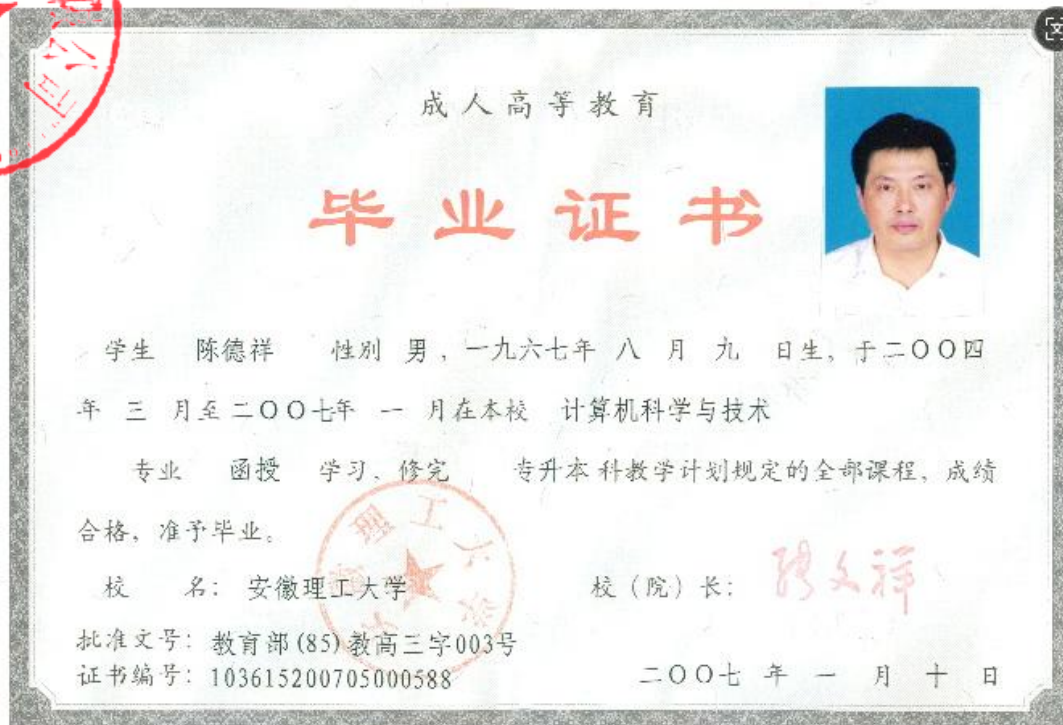 成人高等教育
毕业证书
学生 陈德祥 性别 男，一九六七年 八 月 九 日生，于二〇〇四
年 三 月至二〇〇七年 一 月在本校 计算机科学与技术
专业 函授 学习、修完 专升本科教学计划规定的全部课程，成绩
合格，准予毕业。
校 名：安徽理工大学
校（院）长：
批准文号：教育部(85)教高三字003号
证书编号：103615200705000588
二〇〇七 年 一 月 十 日
安徽理工大学
公司